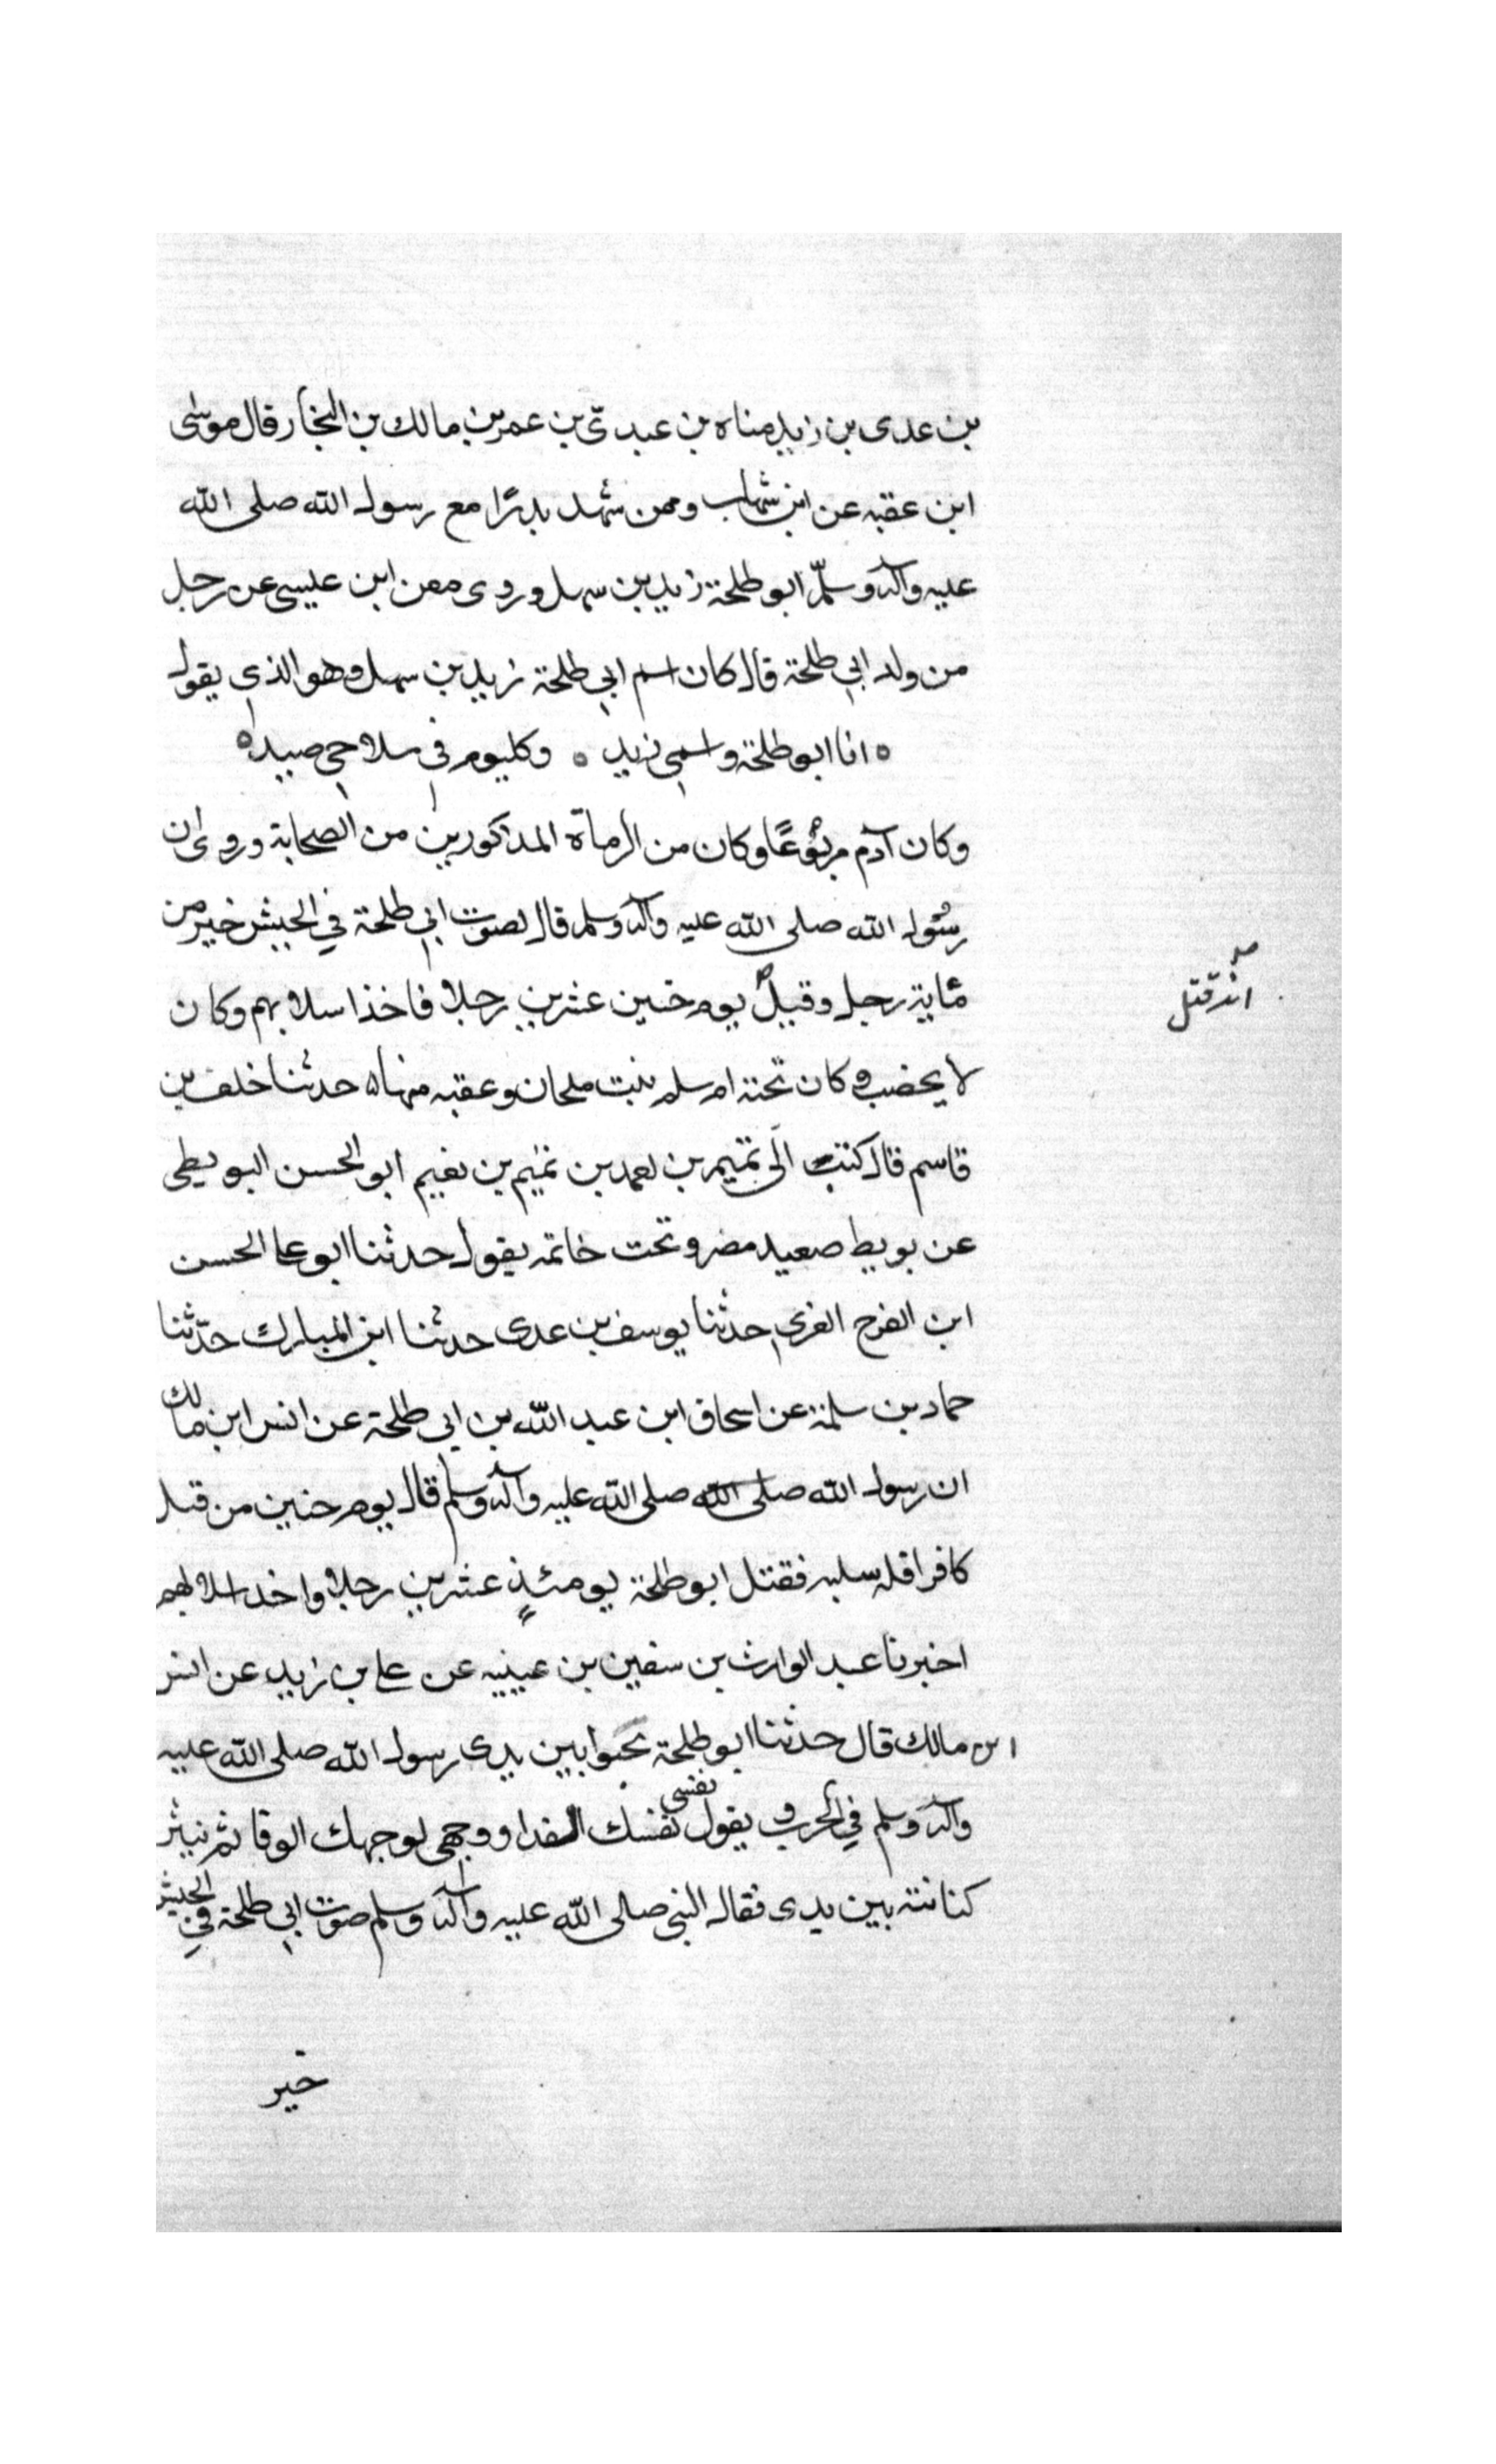 بن عدى بن زيد مناه بن عبد تى بن عمر بن مالك بن النجار قال موسى
ابن عقبه عن ابن شهاب وممن شهد بدرًا مع رسول الله صلى الله
عليه وآله وسلّم ابو طلحة زيد بن سهل وروى معن ابن عليسى عن رجل
من ولد ابي طلحة قال كان اسم ابي طلحة زيد بن سهل وهو الذي يقول
ه انا ابو طلحة واسمي زيد ه وكليوم في سلاحي صيد ه
وكان آدم مربوعًا وكان من الرماة المذكورين من الصحابة وروى ان
رسول الله صلى الله عليه وآله وسلم قال لصوت ابي طلحة في الجيش خير من
مائة رجل وقيل يوم حنين عشرين رجلا فاخذ اسلابهم وكان
انه قتل
لا يخضب وكان تحته ام سلم بنت ملحان وعقبه منها ه حدثنا خلف بن
قاسم قال كتب الى تميم بن نعمد بن تميم بن نعيم ابو الحسن البويطى
عن بويط صعيد مضر وتحت خاتمه يقول حدثنا ابو على الحسن
ابن الفرج الغزي حدثنا يوسف بن عدى حدثنا ابن المبارك حدّثنا
حماد بن سلمة عن اسحاق ابن عبد الله بن ابي طلحة عن انس ابن مالك
ان رسول الله صلى الله صلى الله عليه وآله وسلم قال يوم حنين من قتل
كافرا فله سلبه فقتل ابو طلحة يومئذٍ عشرين رجلا واخذ اسلابهم
اخبرنا عبد الوارث بن سفين بن عيينه عن على بن زيد عن انس
ابن مالك قال حدثنا ابو طلحة يحبوا بين يدى رسول الله صلى الله عليه
وآله وسلم في الحرب ويقول نفسى نفسك الفدا ووجهى لوجهك الوقا ثم ينثر
كنانته بين يدى فقال النبى صلى الله عليه وآله وسلم صوت ابي طلحة في الجيش
خير